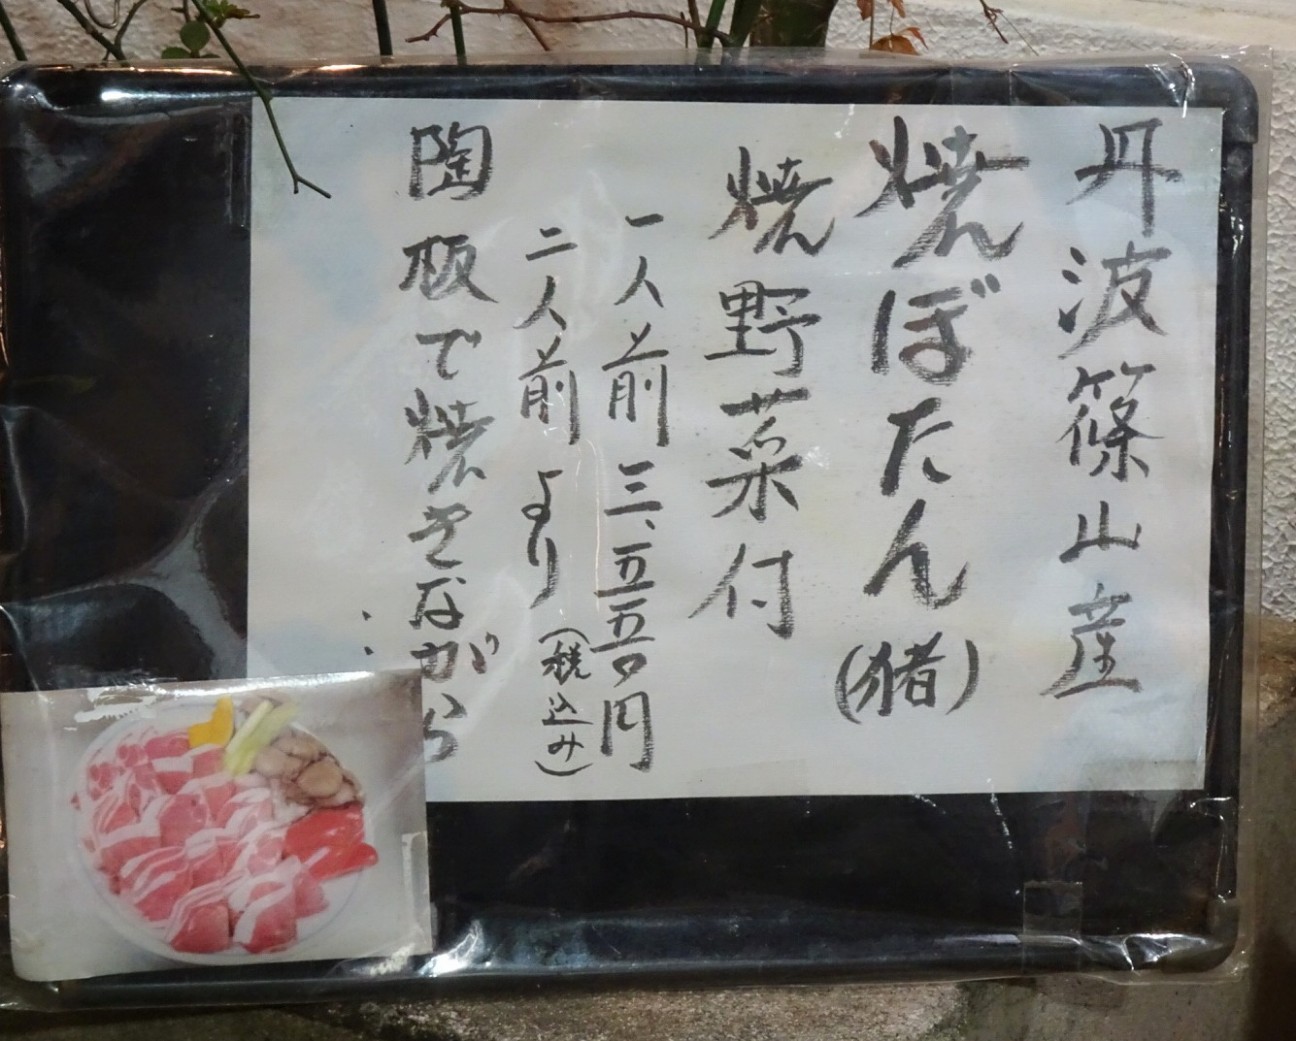 丹波篠山産
焼ぼたん(猪)
焼野菜付
一人前 三、五五〇円
二人前より(税込み)
陶板で焼きながら
‥